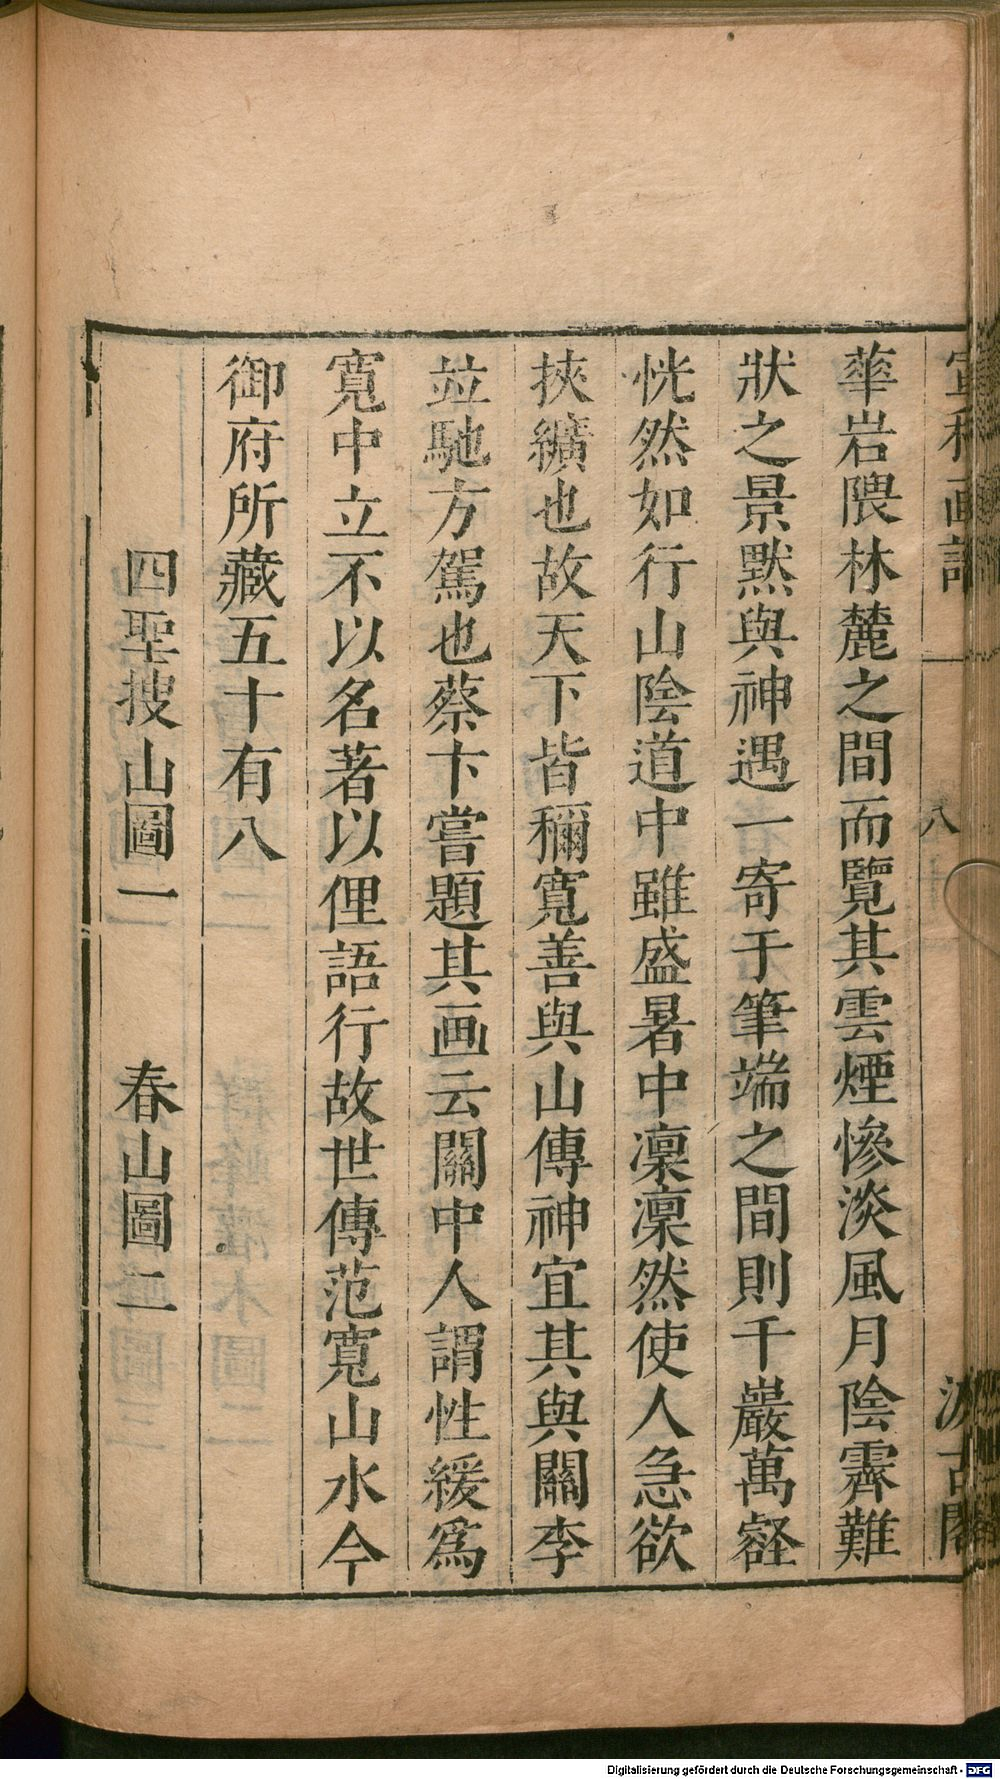 華岩隈林麓之間而覽其雲煙慘淡風月陰霽難
狀之景黙與神遇一寄于筆端之間則千巖萬壑
恍然如行山陰道中雖盛暑中凜凜然使人急欲
挾纊也故天下皆稱寬善與山傳神宜其與關李
竝馳方駕也蔡卞嘗題其画云關中人謂性緩爲
寬中立不以名著以俚語行故世傳范寬山水今
御府所藏五十有八
四聖搜山圖一　春山圖二
八
Digitalisierung gefördert durch die Deutsche Forschungsgemeinschaft - DFG